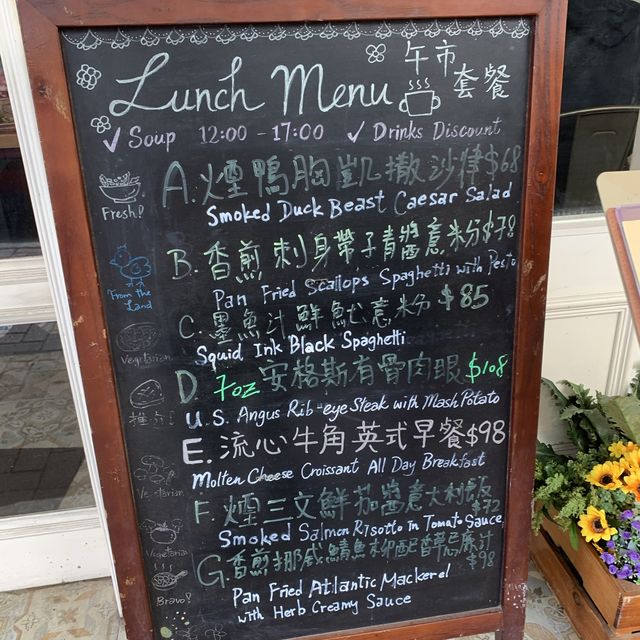 Lunch Menu 午市套餐
✓ Soup 12:00 - 17:00 ✓ Drinks Discount
Fresh!
A. 煙鴨胸凱撒沙律 $68
Smoked Duck Beast Caesar Salad
B. 香煎刺身帶子青醬意粉 $78
Pan Fried Scallops Spaghetti with Pesto
From the Land
C. 墨魚汁鮮魷意粉 $85
Squid Ink Black Spaghetti
Vegetarian
D. 7oz 安格斯有骨肉眼 $108
U.S. Angus Rib-eye Steak with Mash Potato
推介!
E. 流心牛角英式早餐 $98
Molten Cheese Croissant All Day Breakfast
Vegetarian
F. 煙三文鮮茄醬意大利飯 $72
Smoked Salmon Risotto in Tomato Sauce
Vegetarian
G. 香煎挪威鯖魚 $98
Pan Fried Atlantic Mackerel
with Herb Creamy Sauce
Bravo!